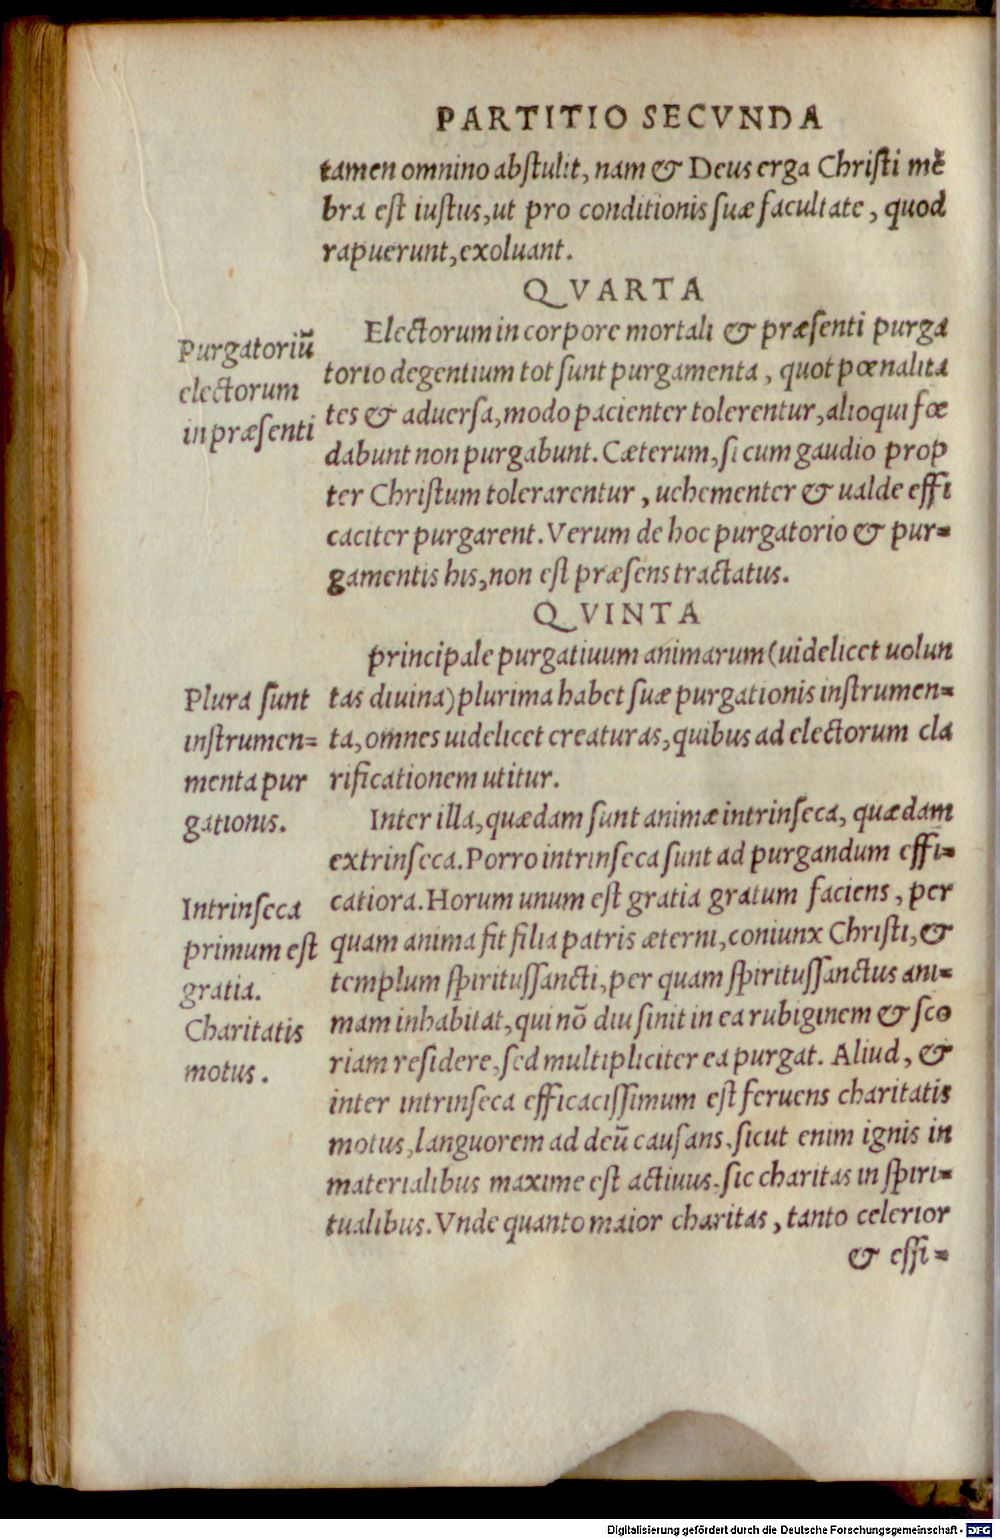 PARTITIO SECVNDA
tamen omnino abstulit, nam & Deus erga Christi mẽ
bra est iustus, ut pro conditionis suæ facultate, quod
rapuerunt, exoluant.
QVARTA
Purgatoriũ
electorum
in præsenti
Electorum in corpore mortali & præsenti purga
torio degentium tot sunt purgamenta, quot pœnalita
tes & aduersa, modo pacienter tolerentur, alioqui fœ
dabunt non purgabunt. Cæterum, si cum gaudio prop
ter Christum tolerarentur, uehementer & ualde effi
caciter purgarent. Verum de hoc purgatorio & pur=
gamentis his, non est præsens tractatus.
QVINTA
Plura sunt
instrumen=
menta pur
gationis.
principale purgatiuum animarum (uidelicet uolun
tas diuina) plurima habet suæ purgationis instrumen=
ta, omnes uidelicet creaturas, quibus ad electorum cla
rificationem utitur.
Intrinseca
primum est
gratia.
Charitatis
motus.
Inter illa, quædam sunt animæ intrinseca, quædam
extrinseca. Porro intrinseca sunt ad purgandum effi=
catiora. Horum unum est gratia gratum faciens, per
quam anima fit filia patris æterni, coniunx Christi, &
templum spiritussancti, per quam spiritussanctus ani=
mam inhabitat, qui nõ diu sinit in ea rubiginem & sco
riam residere, sed multipliciter ea purgat. Aliud, &
inter intrinseca efficacissimum est feruens charitatis
motus, languorem ad deũ causans. sicut enim ignis in
materialibus maxime est actiuus. sic charitas in spiri=
tualibus. Vnde quanto maior charitas, tanto celerior
& effi=
Digitalisierung gefördert durch die Deutsche Forschungsgemeinschaft - DFG